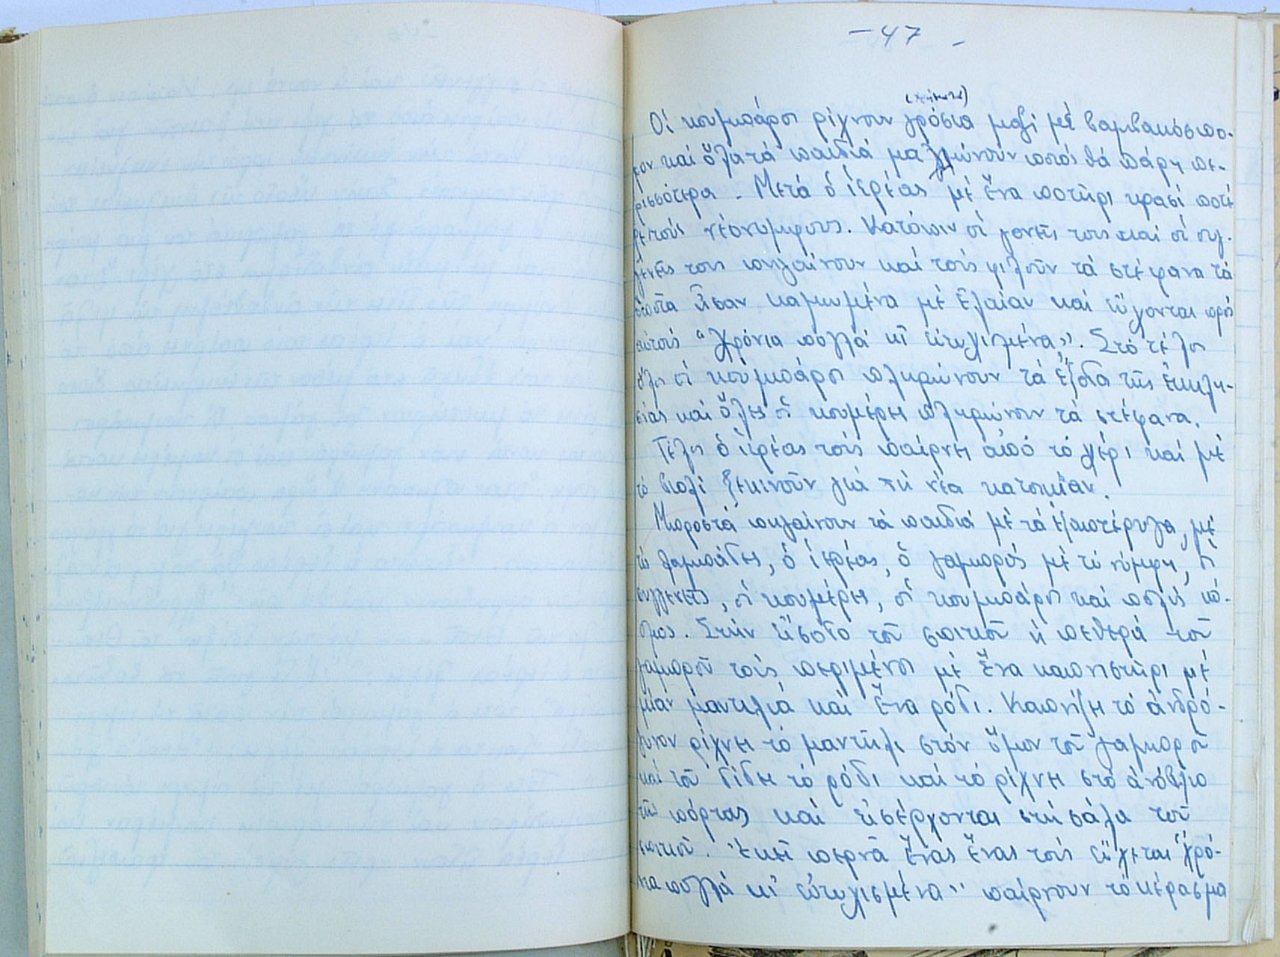 - 47 -
(χρήματα)
Οἱ κουμπάροι ρίχνουν γρόσια μαζί μέ βαμβακόσπο-
ρον καί ὅλα τά παιδιά μαλώνουν ποιός θά πάρη πε-
ρισσότερα. Μετά ὁ ἱερέας μέ ἕνα ποτῆρι κρασί ποτί-
ζει τούς νεόνυμφους. Κατόπιν οἱ γονεῖς τους καί οἱ συγ-
γενεῖς τους πηγαίνουν καί τούς φιλοῦν τά στέφανα τά
ὁποῖα ἦσαν καμωμένα μέ ἐλαίαν καί εὔχονται πρός
αὐτούς "χρόνια πολλά κι εὐτυχισμένα". Στό τέλος
ὅλοι οἱ κουμπάροι πληρώνουν τά ἔξοδα τῆς ἐκκλη-
σίας καί ὅλες οἱ κουμέρες πληρώνουν τά στέφανα.
Τέλος ὁ ἱερέας τούς παίρνει ἀπό τό χέρι καί μέ
τό βιολί ξεκινοῦν γιά τή νέα κατοικίαν.
Μπροστά πηγαίνουν τά παιδιά μέ τά ἑξαπτέρυγα, μέ
τό λαμπάδες, ὁ ἱερέας, ὁ γαμπρός μέ τή νύμφη, οἱ
συγγενεῖς, οἱ κουμέρες, οἱ κουμπάροι καί πολύς κό-
σμος. Στήν εἴσοδο τοῦ σπιτιοῦ ἡ πεθερά τοῦ
γαμπροῦ τούς περιμένει μέ ἕνα καπνιστῆρι μέ
μίαν μαντιλιά καί ἕνα ρόδι. Καπνίζει τό ἀνδρό-
γυνον ρίχνει τό μαντῆλι στόν ὦμον τοῦ γαμπροῦ
καί τοῦ δίδει τό ρόδι καί τό ρίχνει στό ἀνώφλιο
τῆς πόρτας καί εἰσέρχονται στή σάλα τοῦ
σπιτιοῦ. Ἐκεῖ περνᾶ ἕνας ἕνας τούς εὔχεται "χρό-
νια πολλά κι' εὐτυχισμένα" παίρνουν τό κέρασμα